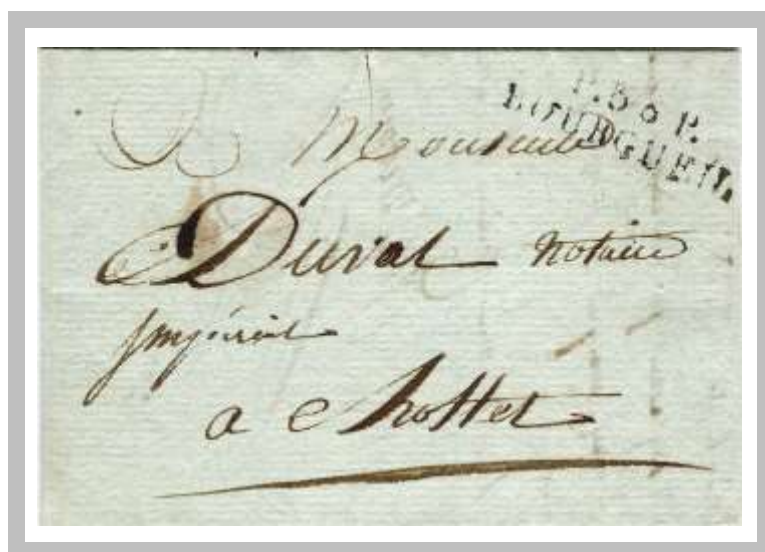 P.36.P.
BOURGUEIL
Monsieur
Duval notaire
Impérial
a Chollet